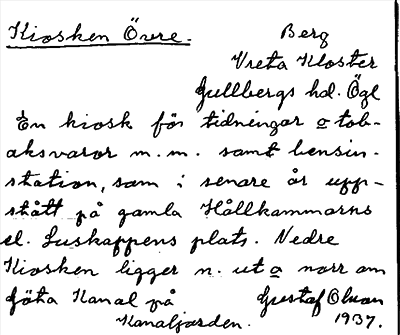 Kiosken Övre.
Berg
Vreta Kloster
Gullbergs hd. Ögl
En kiosk för tidningar o tob-
aksvaror m.m. samt bensin-
station, som i senare år upp-
stått på gamla Hållkammarns
el. Luskappens plats. Nedre
Kiosken ligger n. ut o norr om
Göta Kanal på
Kanaljorden.
Gustaf Olsson
1937.